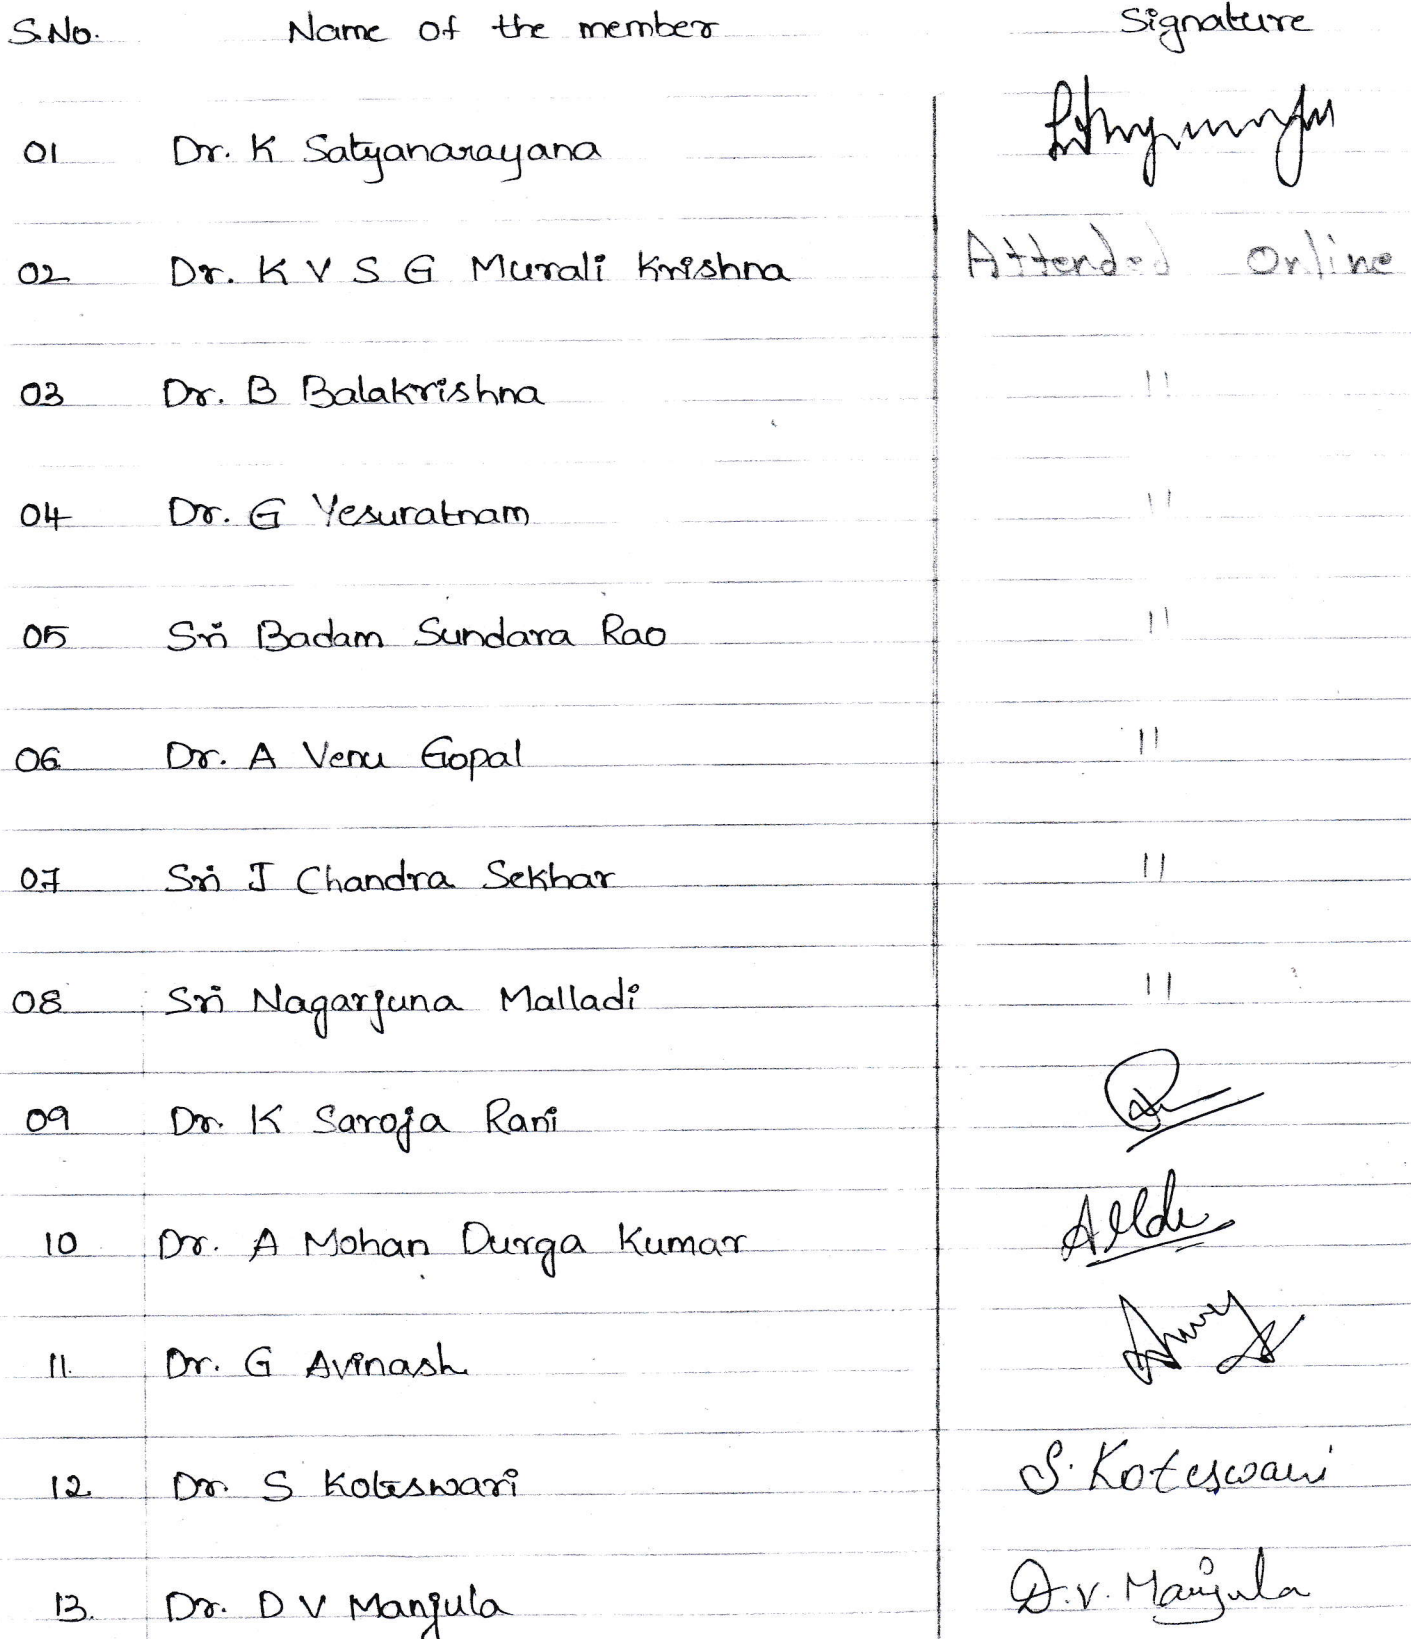 S.No. Name of the member Signature
01 Dr. K Satyanarayana
02 Dr. K V S G Murali Krishna Attended Online
03 Dr. B Balakrishna "
04 Dr. G Yesuratnam "
05 Sri Badam Sundara Rao "
06 Dr. A Venu Gopal "
07 Sri J Chandra Sekhar "
08 Sri Nagarjuna Malladi "
09 Dr. K Saroja Rani
10 Dr. A Mohan Durga Kumar
11. Dr. G Avinash
12 Dr. S Koteswari S. Koteswari
13. Dr. D V Manjula D.V. Manjula